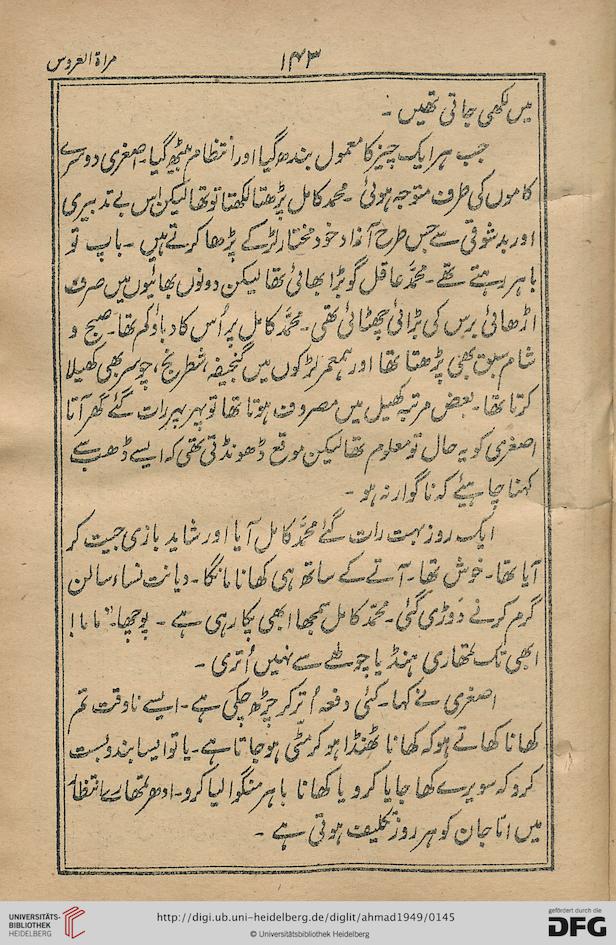 مراۃ العروس
۱۴۳
میں لکھی جاتی تھیں ۔
جب ہر ایک چیز کا معمول بندھ گیا اور انتظام بیٹھ گیا۔ اصغری دوسرے
کاموں کی طرف متوجہ ہوئی ۔ محمد کامل پڑھتا لکھتا تو تھا لیکن اس بے تدبیری
اور بد شوقی سے جس طرح آزاد خود مختار لڑکے پڑھا کرتے ہیں ۔ باپ تو
باہر رہتے تھے ۔ محمّد عاقل گو بڑا بھائی تھا لیکن دونوں بھائیوں میں صرف
اڑھائی برس کی بڑائی چھٹائی تھی ۔ محمّد کامل پر اُس کا دباؤ کم تھا۔ صبح و
شام سبق بھی پڑھتا تھا اور ہمعمر لڑکوں میں گنجیفہ، شطرنج، چوسر بھی کھیلا
کرتا تھا۔ بعض مرتبہ کھیل میں مصروف ہوتا تھا تو پہر پہر رات گئے گھر آتا
اصغری کو یہ حال تو معلوم تھا لیکن موقع ڈھونڈتی تھی کہ ایسے ڈھب سے
کہنا چاہئیے کہ ناگوار نہ ہو ۔
ایک روز بہت رات گئے محمّد کامل آیا اور شاید بازی جیت کر
آیا تھا۔ خوش تھا۔ آنے کے ساتھ ہی کھانا مانگا۔ دیانت نساء سالن
گرم کرنے دَوڑی گئی۔ محمّد کامل سمجھا ابھی پکا رہی ہے ۔ پوچھا۔" ماما!
ابھی تک تمھاری ہنڈیا چولھے سے نہیں اُتری ۔
اصغری نے کہا۔ کئی دفعہ اُتر کر چڑھ چکی ہے ۔ ایسے ناوقت تم
کھانا کھاتے ہو کہ کھانا ٹھنڈا ہو کر مٹّی ہو جاتا ہے ۔ یا تو ایسا بندوبست
کرو کہ سویرے کھا جایا کرو یا کھانا باہر منگوا لیا کرو۔ ادھر تمھارے انتظار
میں امّا جان کو ہر روز تکلیف ہوتی ہے ۔
UNIVERSITÄTS-
BIBLIOTHEK
HEIDELBERG
http://digi.ub.uni-heidelberg.de/diglit/ahmad1949/0145
© Universitätsbibliothek Heidelberg
gefördert durch die
DFG